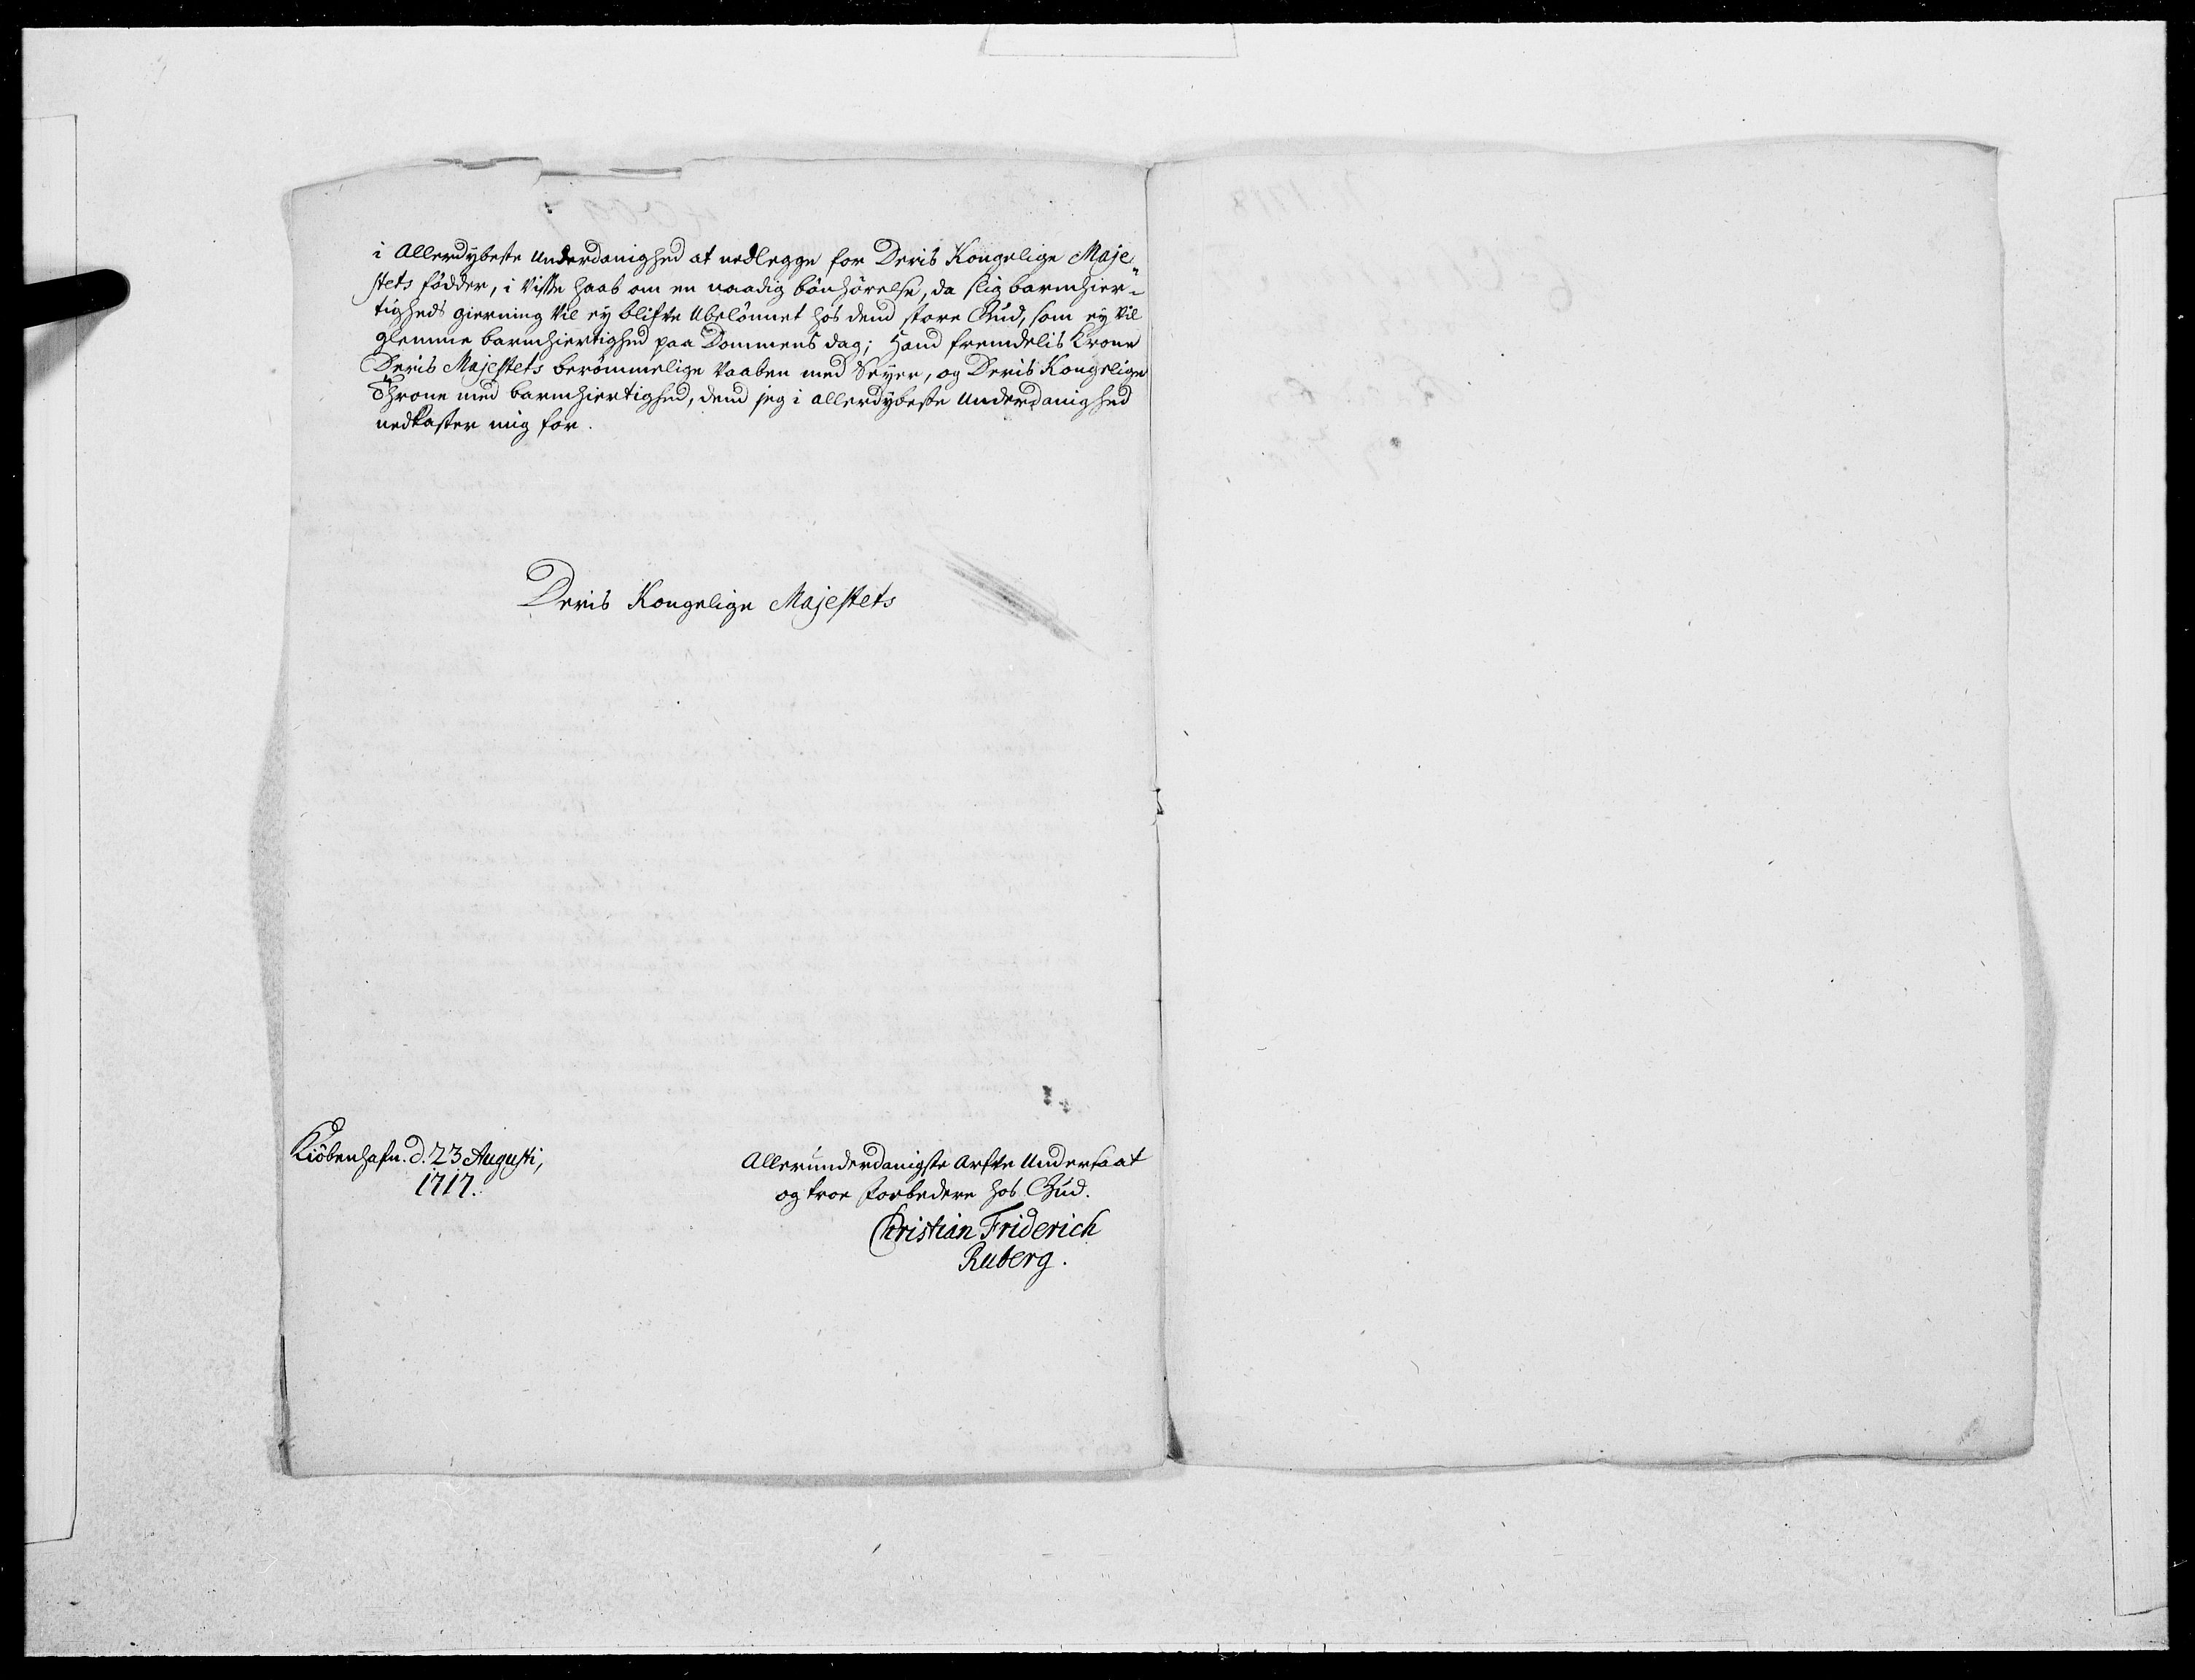 i Allerdybeste Underdanighed at nedlegge for Deris Kongelige Maje„
stets födder, i Visse haab om en naadig bönhörelse, da slig barmhier-
tigheds gierning Vil ey blifve Ubelönnet hos dend store Gud, som ey Vil
glemme barmhiertighed paa Dommens dag; Hand fremdelis Krone
Deris Majestets berömmelige Vaaben med Seyer, og Deris Kongelige
Throne med barmhiertighed, dend jeg i allerdybeste Underdanighed
nedkaster mig for.
Deris Kongelige Majestets
Kiöbenhafn. d. 23 Augusti,
1717.
Allerunderdanigste Arfve Undersaat
og troe Forbedere hos Gud.
Christian Friderich
Ruberg.